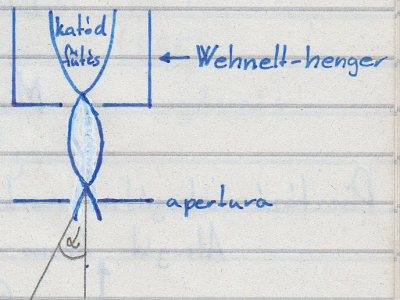 katód
fűtés
Wehnelt-henger
apertura
α